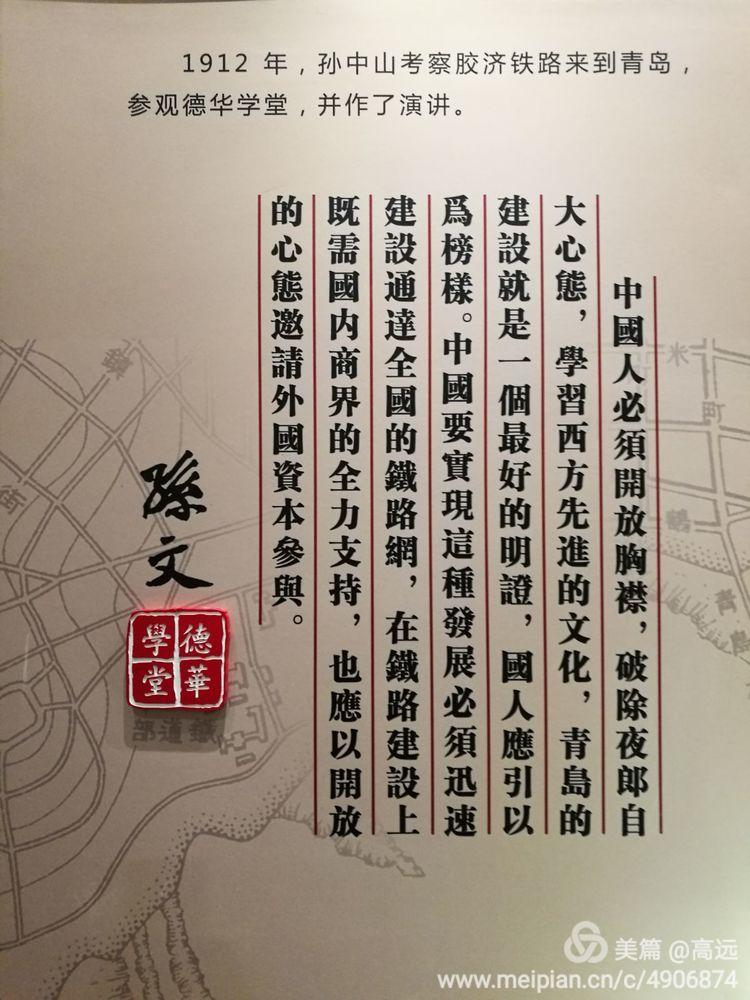 1912 年，孙中山考察胶济铁路来到青岛，
参观德华学堂，并作了演讲。
中國人必須開放胸襟，破除夜郎自
大心態，學習西方先進的文化，青島的
建設就是一個最好的明證，國人應引以
爲榜樣。中國要實現這種發展必須迅速
建設通達全國的鐵路網，在鐵路建設上
既需國内商界的全力支持，也應以開放
的心態邀請外國資本參與。
孫文
德華
學堂
鎮
街
米
町
鶴
青
部道鐵
美篇 @高远
www.meipian.cn/c/4906874